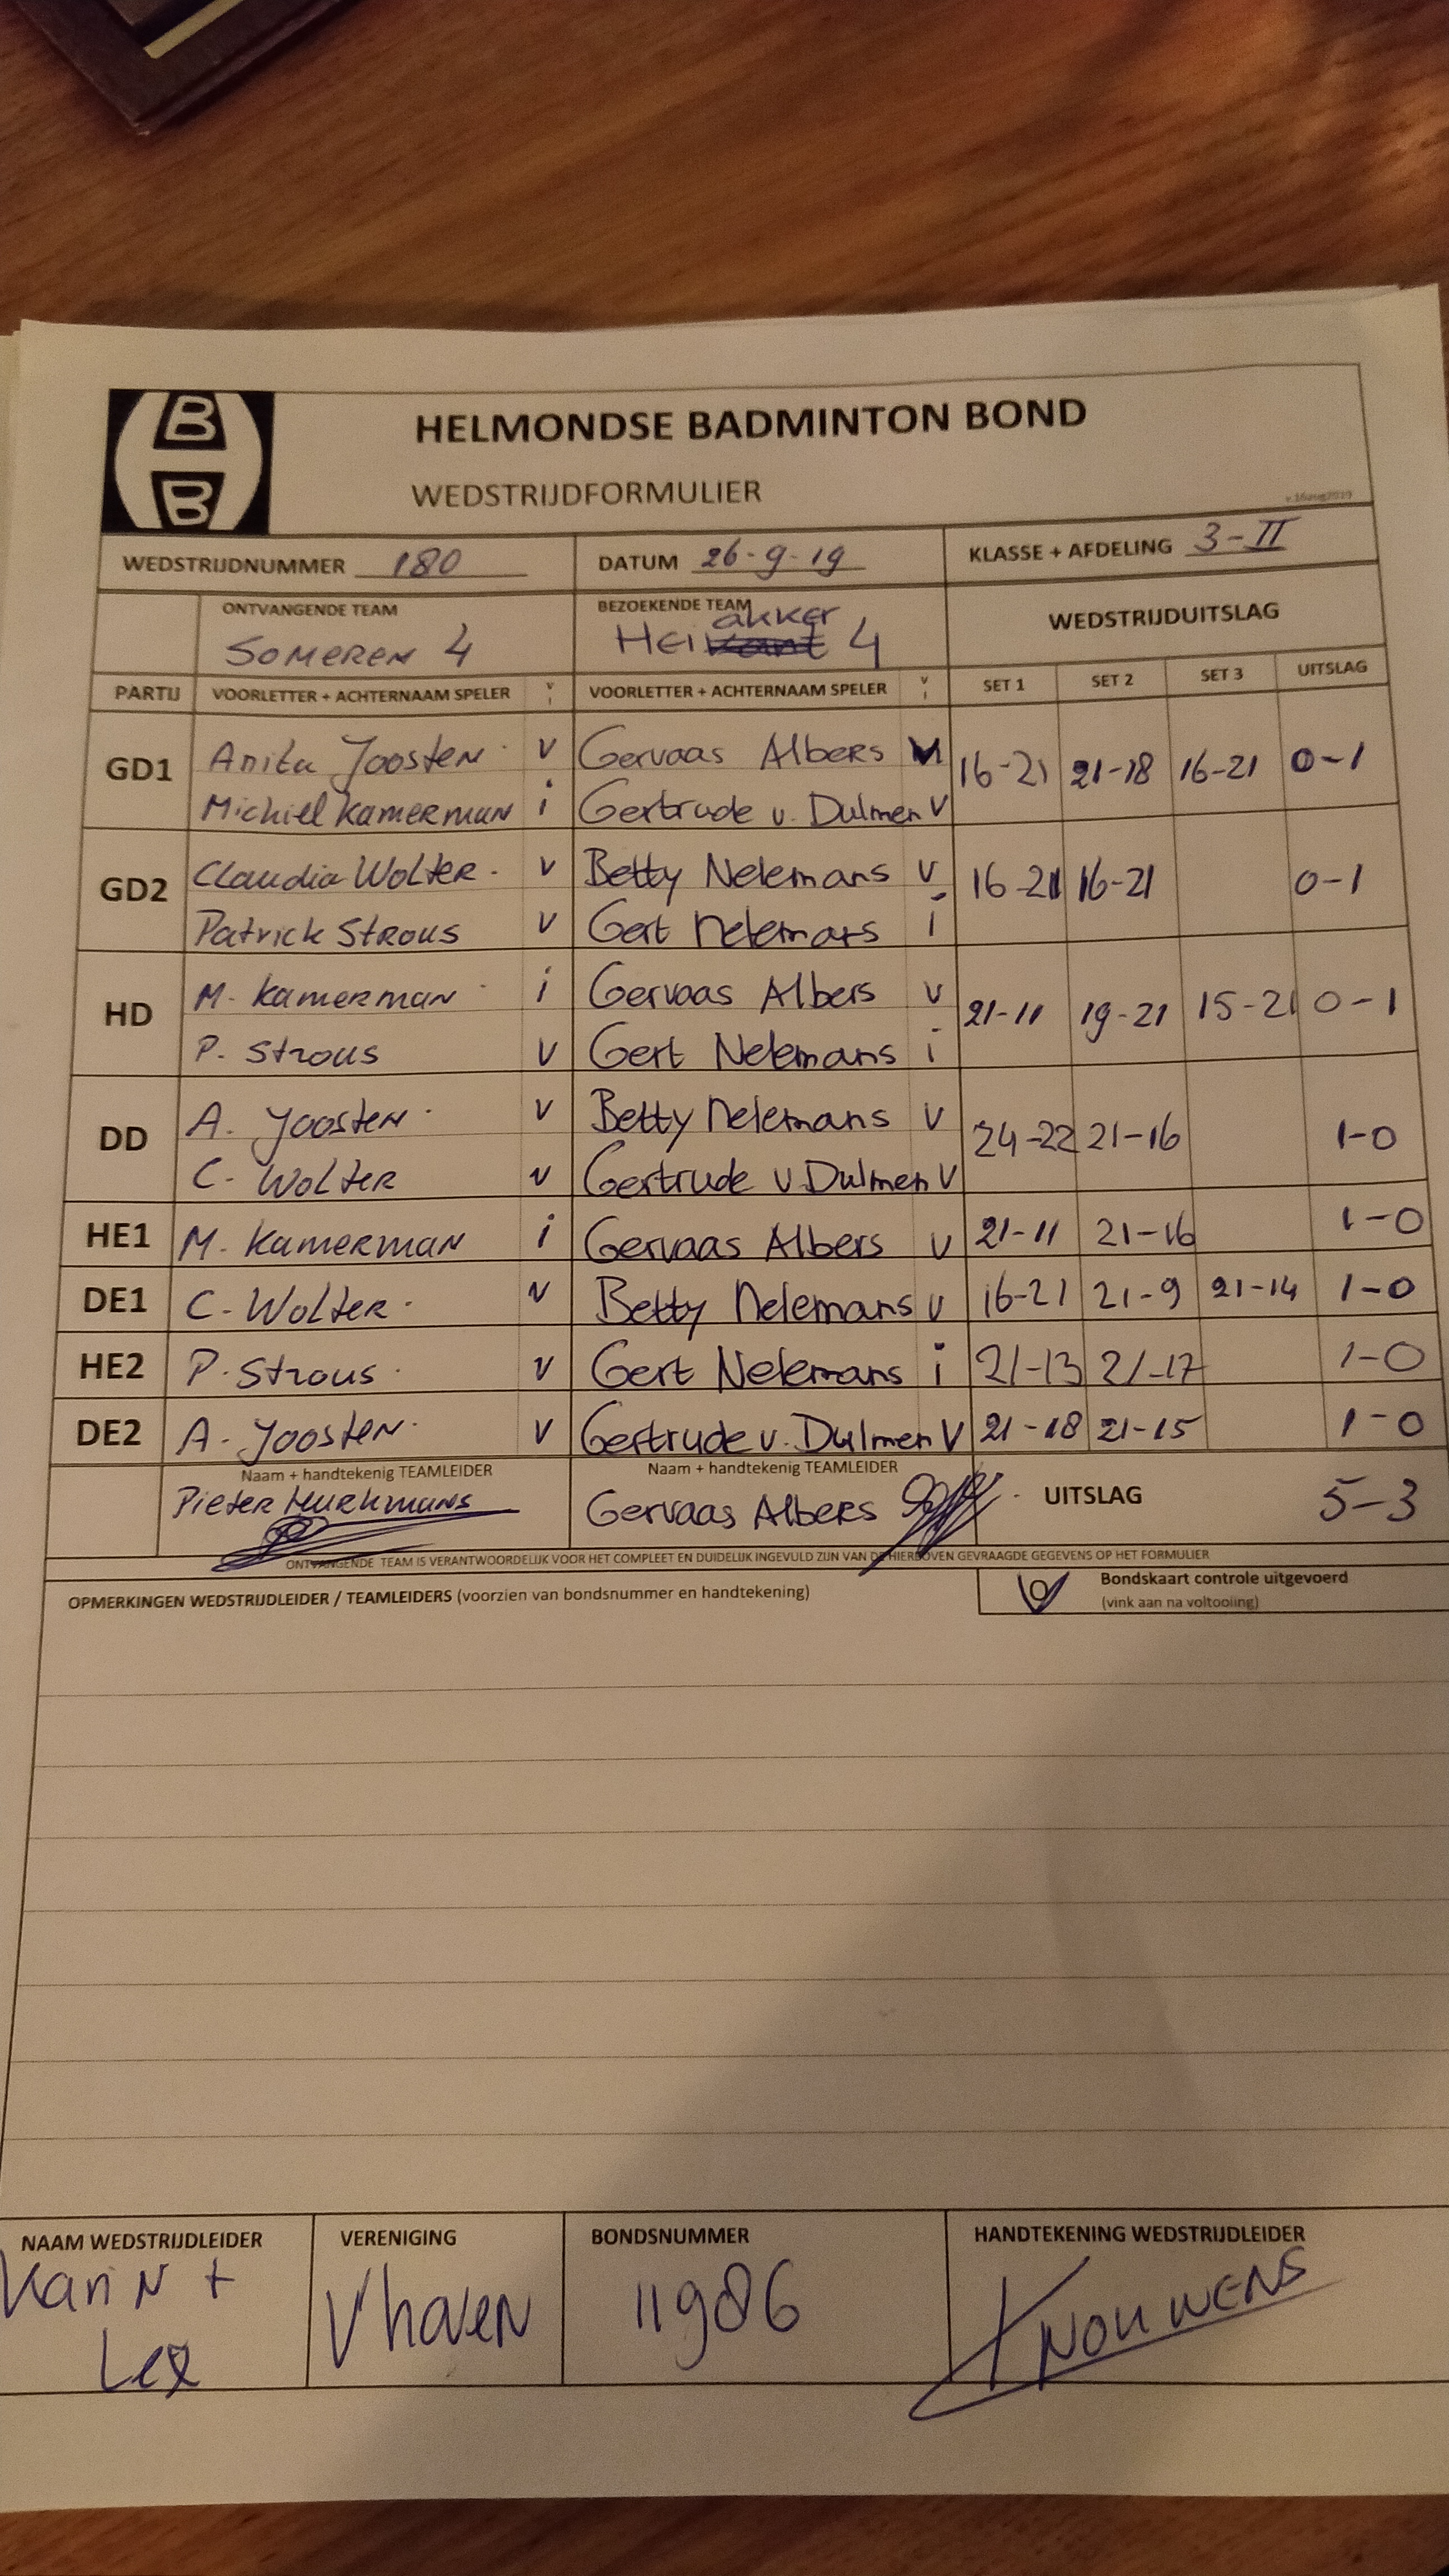 B
B
HELMONDSE BADMINTON BOND
WEDSTRIJDFORMULIER
v.16aug2019
WEDSTRIJDNUMMER 180 DATUM 26-9-19 KLASSE + AFDELING 3-II
ONTVANGENDE TEAM BEZOEKENDE TEAM WEDSTRIJDUITSLAG
akker
SOMEREN 4 Heikant 4
PARTIJ VOORLETTER + ACHTERNAAM SPELER v i VOORLETTER + ACHTERNAAM SPELER v i SET 1 SET 2 SET 3 UITSLAG
Anita Joosten v Gervaas Albers
GD1 16-21 21-18 16-21 0-1
Michiel Kamerman i Gertrude v. Dulmen v
Claudia Wolter. v Betty Nelemans v
GD2 16-21 16-21 0-1
Patrick Strous v Gert Nelemans i
M. Kamerman i Gervaas Albers v
HD 21-11 19-21 15-21 0-1
P. Strous v Gert Nelemans i
A. Joosten v Betty Nelemans v
DD 24-22 21-16 1-0
C. Wolter v Gertrude v Dulmen v
HE1 M. Kamerman i Gervaas Albers v 21-11 21-16 1-0
DE1 C. Wolter. v Betty Nelemans v 16-21 21-9 21-14 1-0
HE2 P. Strous. v Gert Nelemans i 21-13 21-17 1-0
DE2 A. Joosten. v Gertrude v. Dulmen v 21-18 21-15 1-0
Naam + handtekenig TEAMLEIDER Naam + handtekenig TEAMLEIDER
Pieter Gervaas Albers UITSLAG 5-3
ONTVANGENDE TEAM IS VERANTWOORDELIJK VOOR HET COMPLEET EN DUIDELIJK INGEVULD ZIJN VAN DE HIERBOVEN GEVRAAGDE GEGEVENS OP HET FORMULIER
OPMERKINGEN WEDSTRIJDLEIDER / TEAMLEIDERS (voorzien van bondsnummer en handtekening) Bondskaart controle uitgevoerd
(vink aan na voltooiing)
NAAM WEDSTRIJDLEIDER VERENIGING BONDSNUMMER HANDTEKENING WEDSTRIJDLEIDER
Karin + Vhoven 11986 NOUWENS
Lex